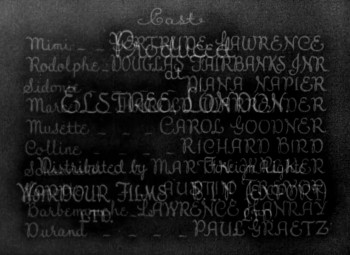 Cast
Mimi _ _ GERTRUDE LAWRENCE
Produced
Rodolphe _ DOUGLAS FAIRBANKS JNR
at
Sidonie DIANA NAPIER
ELSTREE, LONDON
Musette _ _ _ CAROL GOODNER
Colline _ _ RICHARD BIRD
Distributed by Foreign Rights
MARTIN
WARDOUR FILMS B.I.P. (EXPORT)
LTD. LTD.
Barbemuche LAWRENCE HANRAY
Durand _ _ _ _ PAUL GRAETZ